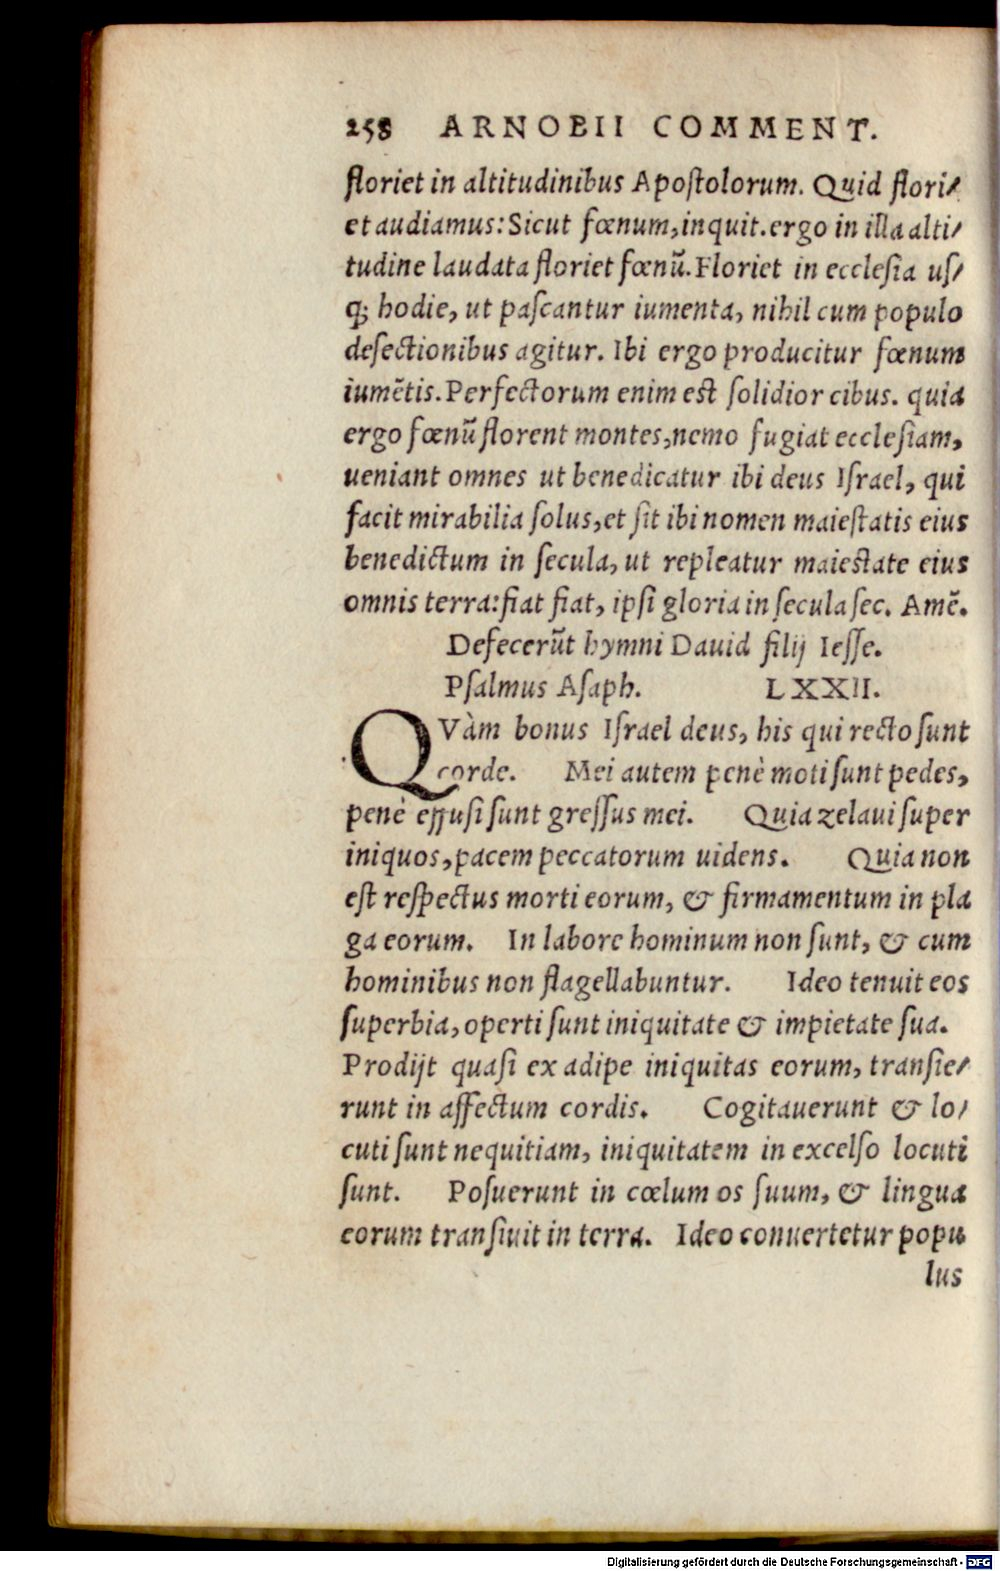 258 ARNOBII COMMENT.
floriet in altitudinibus Apoſtolorum. Quid flori⸗
et audiamus: Sicut fœnum, inquit. ergo in illa alti⸗
tudine laudata floriet fœnū. Floriet in ecclesia uſ⸗
q; hodie, ut paſcantur iumenta, nihil cum populo
deſectionibus agitur. Ibi ergo producitur fœnum
iumētis. Perfectorum enim eſt ſolidior cibus. quia
ergo fœnū florent montes, nemo fugiat eccleſiam,
ueniant omnes ut benedicatur ibi deus Iſrael, qui
facit mirabilia ſolus, et ſit ibi nomen maieſtatis eius
benedictum in ſecula, ut repleatur maieſtate eius
omnis terra: fiat fiat, ipſi gloria in ſecula ſec. Amē.
Defecerūt hymni Dauid filij Ieſſe.
Pſalmus Aſaph. LXXII.
QVàm bonus Iſrael deus, his qui recto ſunt
corde. Mei autem penè moti ſunt pedes,
penè effuſi ſunt greſſus mei. Quia zelaui ſuper
iniquos, pacem peccatorum uidens. Quia non
eſt reſpectus morti eorum, & firmamentum in pla
ga eorum. In labore hominum non ſunt, & cum
hominibus non flagellabuntur. Ideo tenuit eos
ſuperbia, operti ſunt iniquitate & impietate ſua.
Prodijt quaſi ex adipe iniquitas eorum, tranſie⸗
runt in affectum cordis. Cogitauerunt & lo⸗
cuti ſunt nequitiam, iniquitatem in excelſo locuti
ſunt. Poſuerunt in cœlum os ſuum, & lingua
eorum tranſiuit in terra. Ideo conuertetur popu
lus
Digitalisierung gefördert durch die Deutsche Forschungsgemeinschaft - DFG